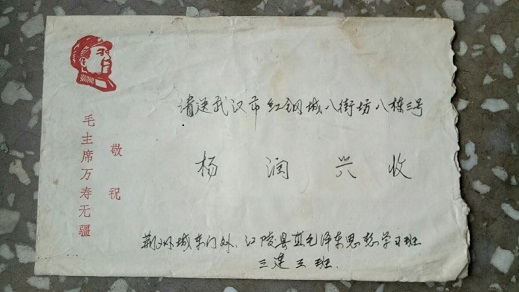 敬祝
毛主席万寿无疆
请送武汉市红钢城八街坊八栋三号
杨润兴收
荆州城东门外、江陵县直毛泽东思想学习班
三连三班